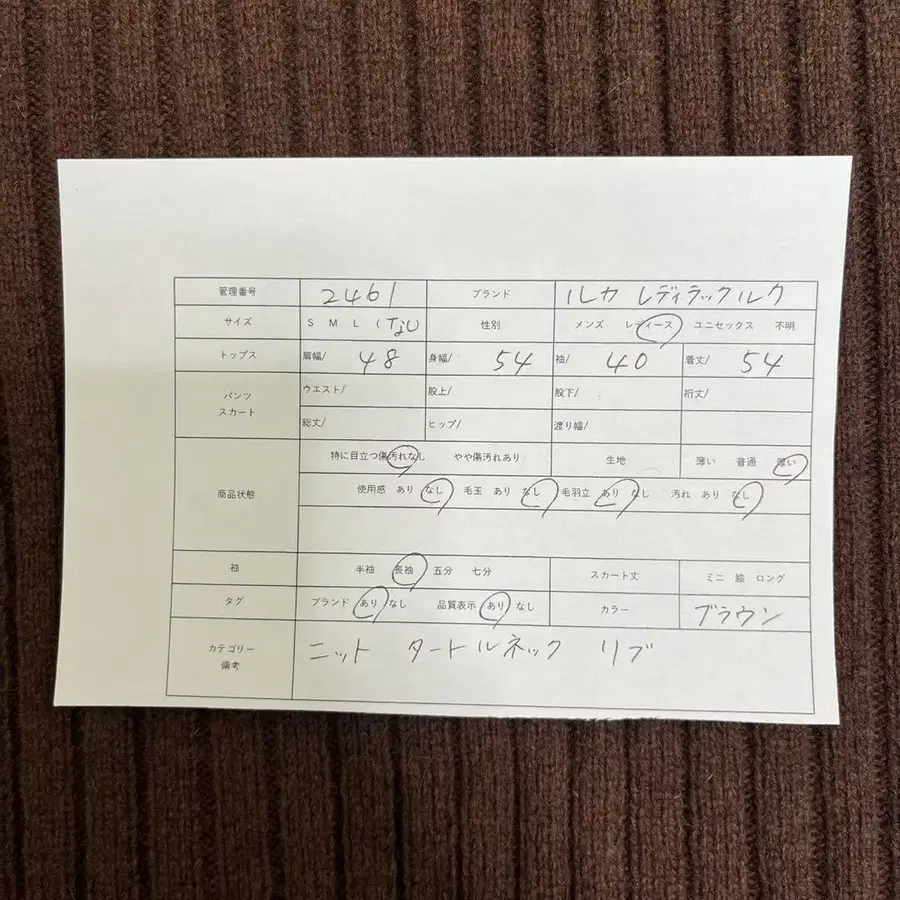 管理番号 2461 ブランド ルカ レディラックルク
サイズ S M L (なし 性別 メンズ レディース ユニセックス 不明
トップス 肩幅/ 48 身幅/ 54 袖/ 40 着丈/ 54
パンツ スカート ウエスト/ 股上/ 股下/ 裄丈/
総丈/ ヒップ/ 渡り幅/
商品状態 特に目立つ傷汚れなし やや傷汚れあり 生地 薄い 普通 厚い
使用感 あり なし 毛玉 あり なし 毛羽立 あり なし 汚れ あり なし
袖 半袖 長袖 五分 七分 スカート丈 ミニ 膝 ロング
タグ ブランド あり なし 品質表示 あり なし カラー ブラウン
カテゴリー 備考 ニット タートルネック リブ